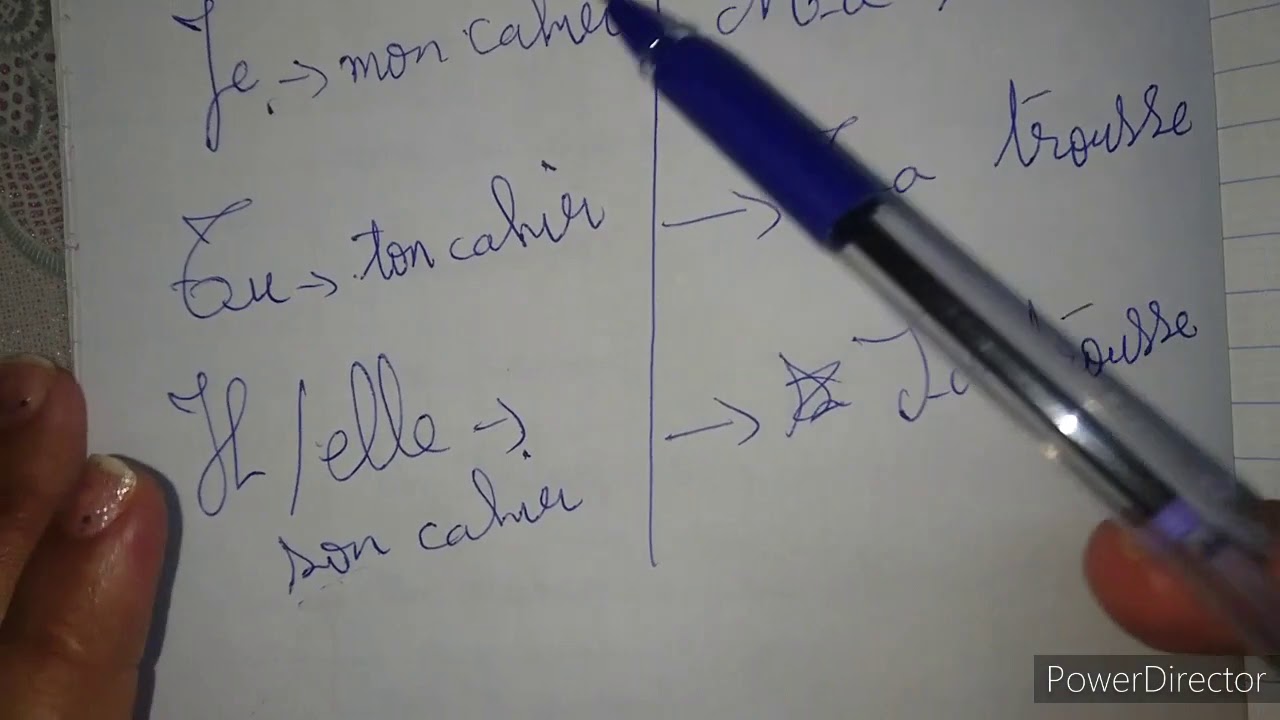 Je → mon cahier
→ trousse
Tu → ton cahier
Il / elle → → 
son cahier
PowerDirector